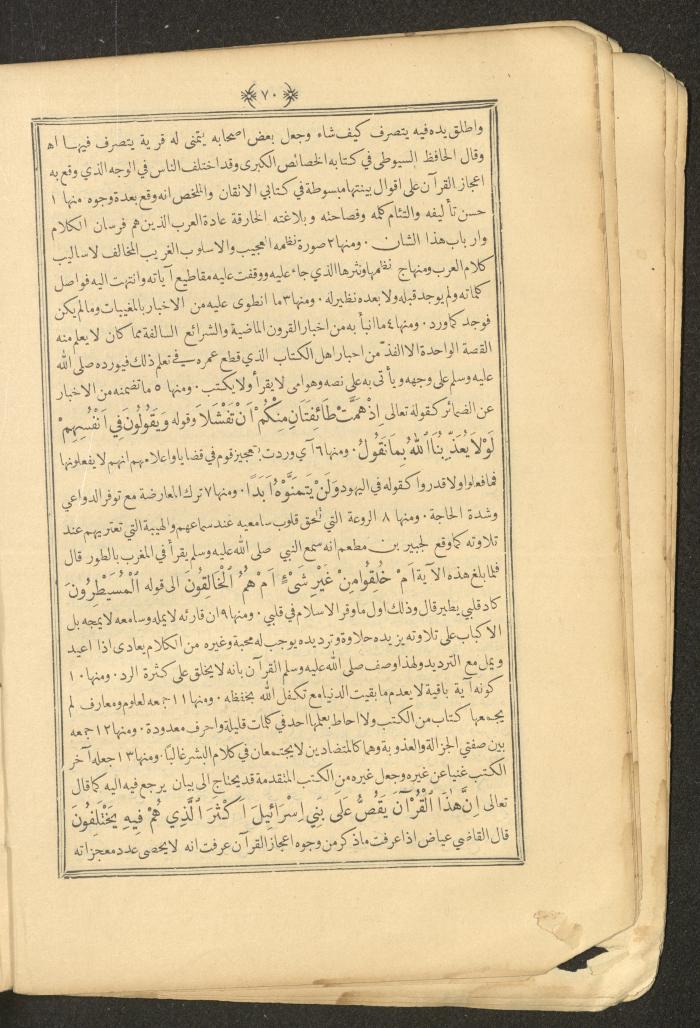 ﴿٧٠﴾
واطلق يده فيه يتصرف كيف شاء وجعل بعض اصحابه يتمنى له قرية يتصرف فيها اه
وقال الحافظ السيوطي في كتابه الخصائص الكبرى وقد اختلف الناس في الوجه الذي وقع به
اعجاز القرآن على اقوال بينتها مبسوطة في كتابي الاتقان والملخص انه وقع بعدة وجوه منها ١
حسن تأليفه والتئام كلمه وفصاحته وبلاغته الخارقة عادة العرب الذين هم فرسان الكلام
وارباب هذا الشان ٠ ومنها ٢ صورة نظمه العجيب والاسلوب الغريب المخالف لاساليب
كلام العرب ومنهاج نظمها ونثرها الذي جاء عليه ووقفت عليه مقاطيع آياته وانتهت اليه فواصل
كلماته ولم يوجد قبله ولا بعده نظير له ٠ ومنها ٣ ما انطوى عليه من الاخبار بالمغيبات وما لم يكن
فوجد كما ورد ٠ ومنها ٤ ما انبأ به من اخبار القرون الماضية والشرائع السالفة مما كان لا يعلم منه
القصة الواحدة الا الفذ من احبار اهل الكتاب الذي قطع عمره في تعلم ذلك فيورده صلى الله
عليه وسلم على وجهه ويأتي به على نصه وهو امي لا يقرأ ولا يكتب ٠ ومنها ٥ ما تضمنه من الاخبار
عن الضمائر كقوله تعالى إِذْ هَمَّتْ طَائِفَتَانِ مِنْكُمْ أَنْ تَفْشَلَا وقوله وَيَقُولُونَ فِي أَنْفُسِهِمْ
لَوْلَا يُعَذِّبُنَا ٱللهُ بِمَا نَقُولُ ٠ ومنها ٦ آي وردت بتعجيز قوم في قضايا واعلامهم انهم لا يفعلونها
فما فعلوا ولا قدروا كقوله في اليهود وَلَنْ يَتَمَنَّوْهُ أَبَدًا ٠ ومنها ٧ ترك المعارضة مع توفر الدواعي
وشدة الحاجة ٠ ومنها ٨ الروعة التي تلحق قلوب سامعيه عند سماعهم والهيبة التي تعتريهم عند
تلاوته كما وقع لجبير بن مطعم انه سمع النبي صلى الله عليه وسلم يقرأ في المغرب بالطور قال
فلما بلغ هذه الآية أَمْ خُلِقُوا مِنْ غَيْرِ شَىْءٍ أَمْ هُمُ ٱلْخَالِقُونَ الى قوله ٱلْمُسَيْطِرُونَ
كاد قلبي يطير قال وذلك اول ما وقر الاسلام في قلبي ٠ ومنها ٩ ان قارئه لا يمله وسامعه لا يمجه بل
الاكباب على تلاوته يزيده حلاوة وترديده يوجب له محبة وغيره من الكلام يعادى اذا اعيد
ويمل مع الترديد ولهذا وصف صلى الله عليه وسلم القرآن بانه لا يخلق على كثرة الرد ٠ ومنها ١٠
كونه آية باقية لا يعدم ما بقيت الدنيا مع تكفل الله بحفظه ٠ ومنها ١١ جمعه لعلوم ومعارف لم
يجمعها كتاب من الكتب ولا احاط بعلمها احد في كلمات قليلة واحرف معدودة ٠ ومنها ١٢ جمعه
بين صفتي الجزالة والعذوبة وهما كالمتضادين لا يجتمعان في كلام البشر غالبًا ٠ ومنها ١٣ جعله آخر
الكتب غنيا عن غيره وجعل غيره من الكتب المتقدمة قد يحتاج الى بيان يرجع فيه اليه كما قال
تعالى إِنَّ هٰذَا ٱلْقُرْآنَ يَقُصُّ عَلَى بَنِي إِسْرَائِيلَ أَكْثَرَ ٱلَّذِي هُمْ فِيهِ يَخْتَلِفُونَ
قال القاضي عياض اذا عرفت ما ذكر من وجوه اعجاز القرآن عرفت انه لا يحصى عدد معجزاته